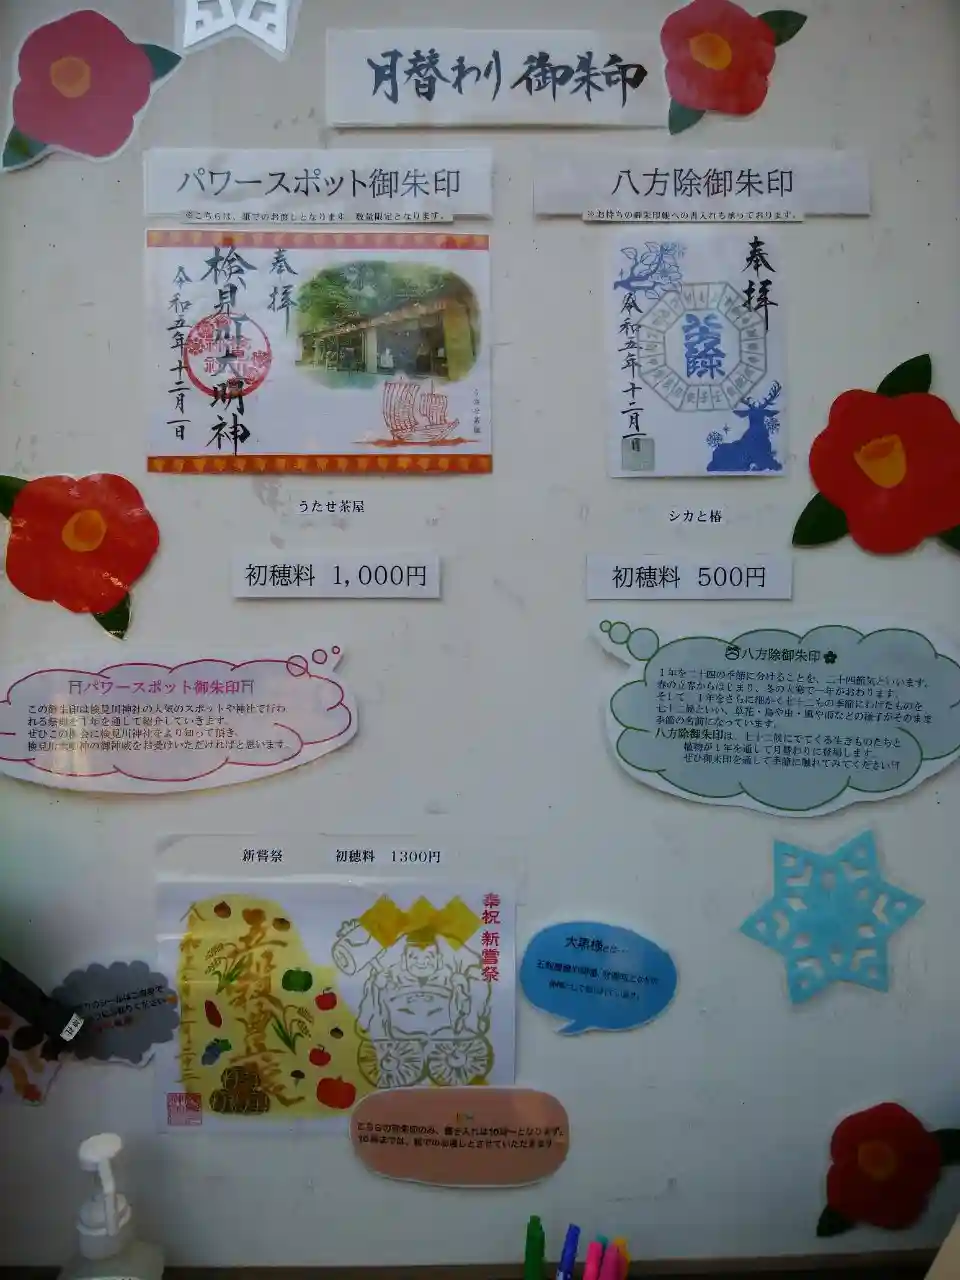 月替わり 御朱印
パワースポット御朱印
※こちらは、紙でのお渡しとなります 数量限定となります。
奉拝
検見川大明神
令和五年十二月一日
うたせ茶屋
初穂料 1,000円
八方除御朱印
※お持ちの御朱印帳への書入れも承っております。
奉拝
令和五年十二月一日
シカと椿
初穂料 500円
パワースポット御朱印
この御朱印は検見川神社の人気のスポットや神社で行わ
れる祭祀を1年を通して紹介していきます。
ぜひこの機会に検見川神社をより知って頂き、
検見川大明神の御神威をお受けいただければと思います。
八方除御朱印
1年を二十四の季節に分けることを、二十四節気といいます。
春の立春からはじまり、冬の大寒で一年がおわります。
そして 1年をさらに細かく七十二もの季節にわけたものを
七十二候といい、草花・鳥や虫・風や雨などの様子がそのまま
季節の名前になっています。
八方除御朱印は、七十二候にでてくる生きものたちと
植物が1年を通して月替わりに登場します。
ぜひ御朱印を通して季節に触れてみてください
新嘗祭 初穂料 1300円
奉祝 新嘗祭
五穀豊穣
大黒様とは…
こちらの御朱印のみ、書き入れは10時〜となります。
10時までは、紙でのお渡しとさせていただきます